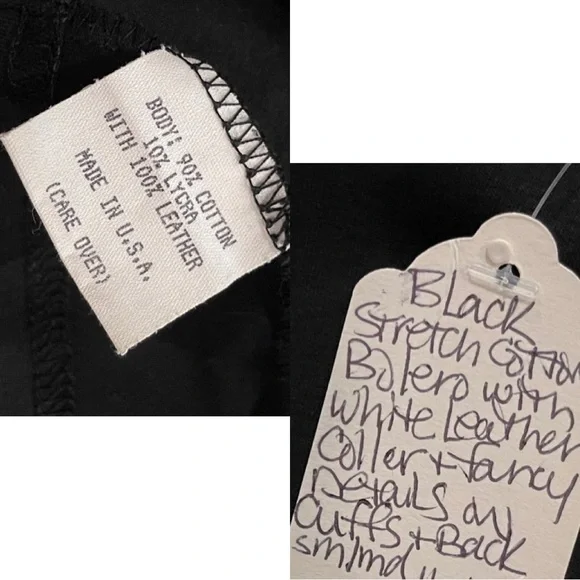 BODY: 90% COTTON
10% LYCRA
WITH 100% LEATHER
MADE IN U.S.A.
(CARE OVER)
Black
Stretch Cotton
Bolero with
White Leather
Coller + fancy
Details on
Cuffs + Back
sm/md